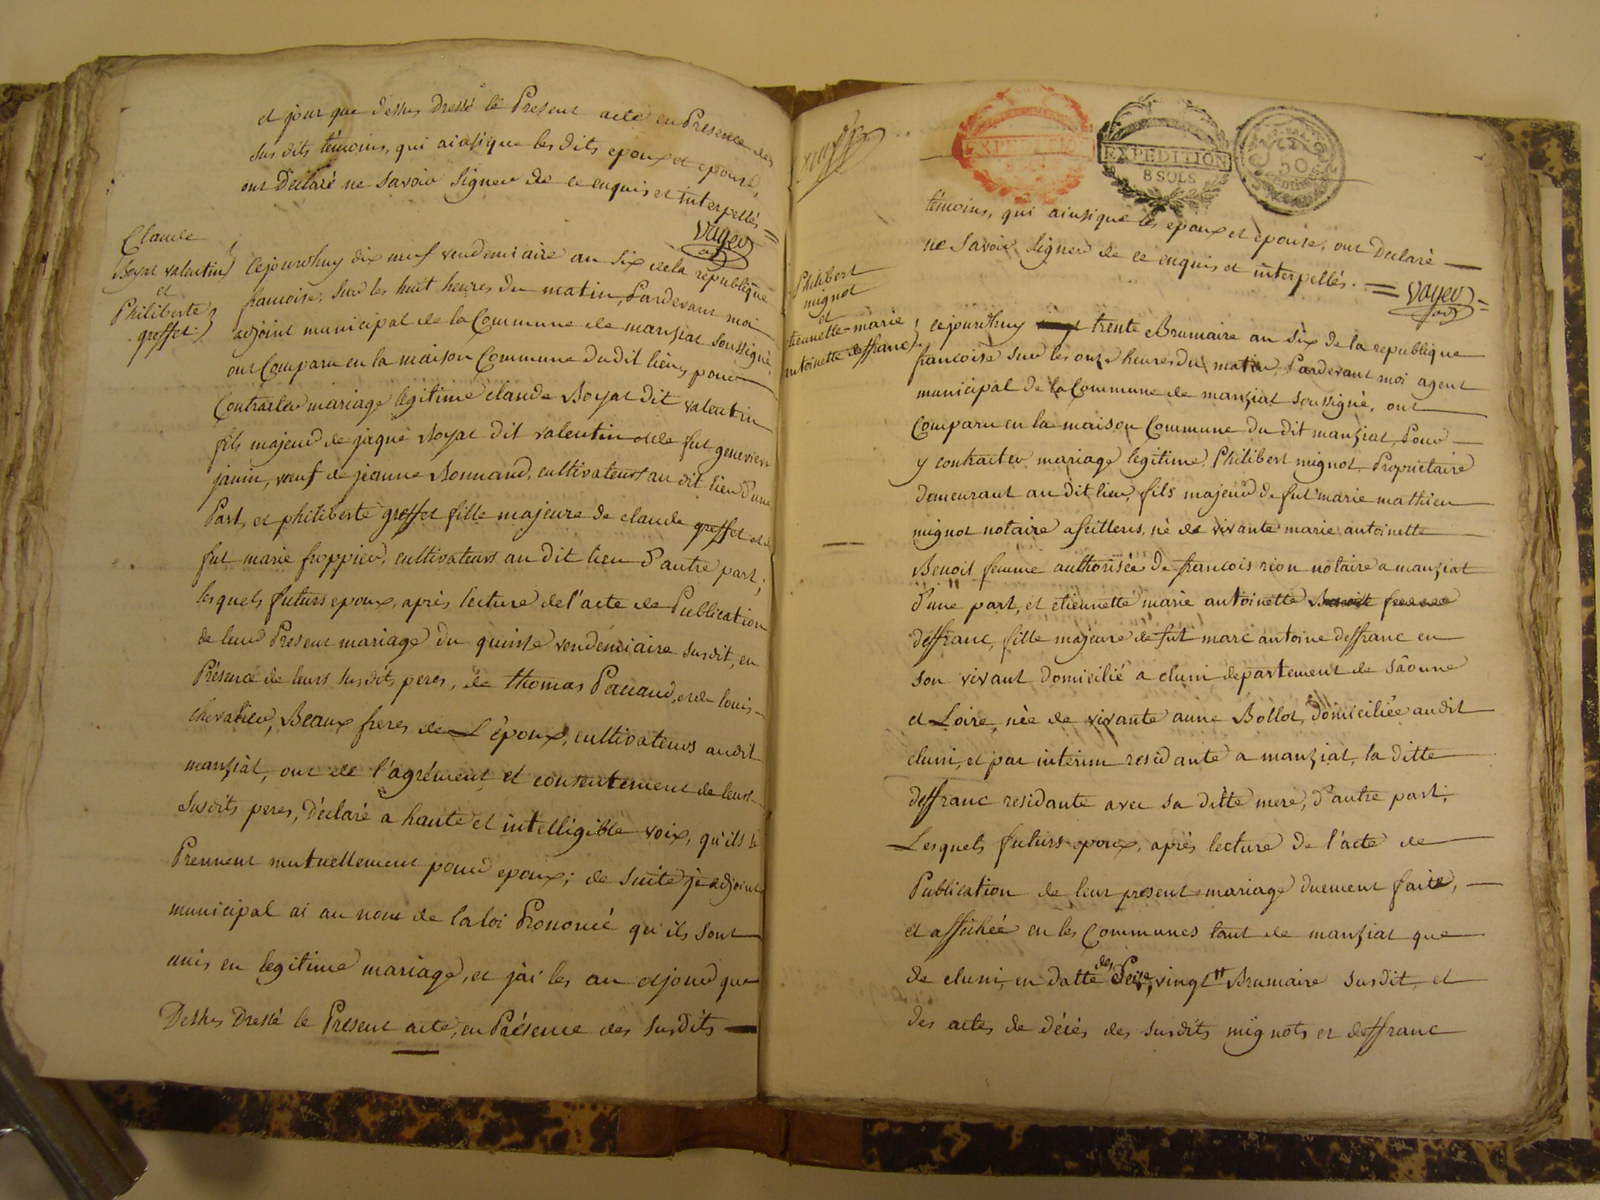 et jour que dessus dressé le Present acte en Presence des
sus dits témoins, qui ainsique les dits epoux et epouse,
ont Déclaré ne savoir signer de ce enquis et interpellés =
Voyer
Claude
Boyat valentin
et
Philiberte
greffet
Cejourdhuy dix neuf vendemiaire an six de la republique
francoise, sur les huit heures du matin, Pardevant moi
adjoint municipal de la Commune de manziat soussigné
ont Comparu en la maison Commune dudit lieu, pour
Contracter mariage legitime claude Boyat dit valentin
fils majeur de jaque Boyat dit valentin et de fut genevieve
janin, veuf de jeanne Bonnand, cultivateurs au dit lieu d'une
Part, et philiberte greffet fille majeure de claude greffet et de
fut marie froppier, cultivateurs au dit lieu d'autre part;
lesquels futurs epoux, après lecture de l'acte de Publication
de leur Present mariage du quinse vendémiaire susdit, en
Présence de leurs susdits peres, de thomas Pacaud, et de louis
chevalier, Beaux freres de L'époux, cultivateurs audit
manziat, ont de l'agrément et consentement de leurs
susdits peres, Déclaré a haute et intelligible voix, qu'ils se
Prennent mutuellement pour epoux; de suite je adjoint
municipal ai au nom de la loi Prononcé qu'ils sont
unis en legitime mariage, et j'ai les an et jour que
Dessus Dressé le Present acte, en Présence des susdits
EXPEDITION
EXPEDITION
8 SOLS
50
témoins, qui ainsique les epoux et epouse, ont Declaré
ne savoir signer de ce enquis et interpellés. = Voyer =
Philibert
mignot
et
etiennette-marie
antoinette deffranc
Cejourdhuy trente Brumaire an six de la republique
francoise sur les onze heures du matin, Pardevant moi agent
municipal de la Commune de manziat soussigné, ont
Comparu en la maison Commune du dit manziat, Pour
y contracter mariage legitime, Philibert mignot Proprietaire
Demeurant au dit lieu, fils majeur de fut marie mathieu
mignot notaire a feillens, né de vivante marie antoinette
Benoit femme authorisée de francois rion notaire a manziat
d'une part, et etiennette marie antoinette Benoit femme
deffranc, fille majeure de fut marc antoine deffranc en
son vivant domicilié a cluni departement de sâonne
et Loire, née de vivante anne Bollot, domiciliée audit
cluni, et par interim residante a manziat, la ditte
deffranc residante avec sa ditte mere, d'autre part;
Lesquels futurs epoux, après lecture de l'acte de
Publication de leur present mariage duement faite,
et affichée en les Communes tant de manziat que
de cluni, en datte des Seise, vingt Brumaire susdit, et
des actes de décès des susdits mignots et deffranc